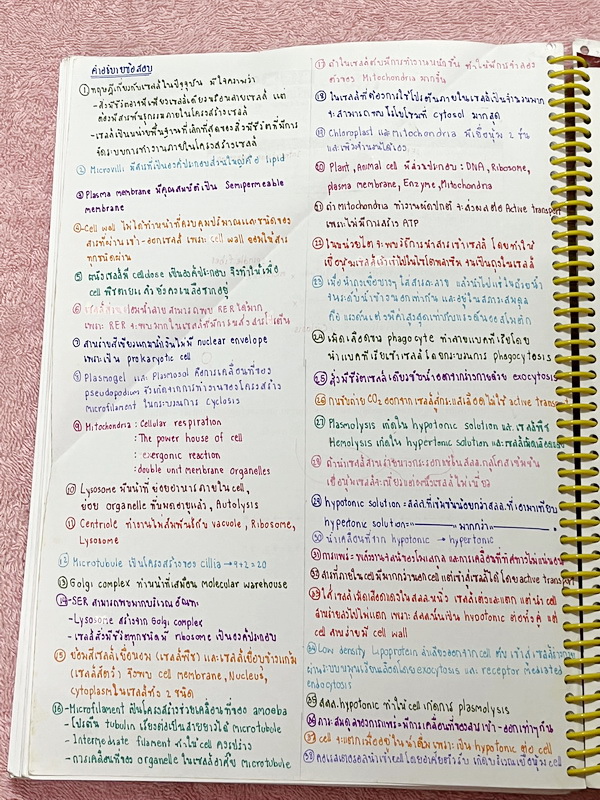 คำอธิบายข้อสอบ
① ทฤษฎีเกี่ยวกับเซลล์ในปัจจุบัน มีใจความว่า
- สิ่งมีชีวิตอาจมีเพียงเซลล์เดียวหรือหลายเซลล์ แต่
ต้องมีสารพันธุกรรมภายในโครงสร้างเซลล์
- เซลล์เป็นหน่วยพื้นฐานที่เล็กที่สุดของสิ่งมีชีวิตที่มีการ
จัดระบบการทำงานภายในโครงสร้างเซลล์
② Microvilli มีสารที่เป็นองค์ประกอบส่วนใหญ่คือ lipid
③ Plasma membrane มีคุณสมบัติเป็น Semipermeable
membrane
④ Cell wall ไม่ได้ทำหน้าที่ควบคุมปริมาณและชนิดของ
สารที่ผ่านเข้า-ออกเซลล์ เพราะ cell wall ยอมให้สาร
ทุกชนิดผ่าน
⑤ ผนังเซลล์มี cellulose เป็นองค์ประกอบ จึงทำให้เมื่อ
cell พืชตายแล้วยังคงเหลือซากอยู่
⑥ เซลล์ต่อมน้ำลายสามารถพบ RER ได้มาก
เพราะ RER จะพบมากในเซลล์ที่มีการ
⑦ สาหร่ายสีเขียวแกมน้ำเงินไม่มี nuclear envelope
เพราะเป็น prokaryotic cell
⑧ Plasmogel และ Plasmosol คือการเคลื่อนที่ของ
pseudopodium ซึ่งเกิดจากการทำงานของโครงสร้าง
microfilament ในกระบวนการ Cyclosis
⑨ Mitochondria : Cellular respiration
: The power house of cell
: exergonic reaction
: double unit membrane organelles
⑩ Lysosome มีหน้าที่ ย่อยอาหารภายใน cell,
ย่อย organelle ที่หมดอายุแล้ว, Autolysis
⑪ Centriole ทำงานไม่สัมพันธ์กับ vacuole, Ribosome,
Lysosome
⑫ Microtubule เป็นโครงสร้างของ cillia → 9+2 = 20
⑬ Golgi complex ทำหน้าที่เสมือน molecular warehouse
⑭ - SER สามารถพบมากบริเวณอัณฑะ
- Lysosome สร้างจาก Golgi complex
- เซลล์สิ่งมีชีวิตทุกชนิดมี ribosome เป็นองค์ประกอบ
⑮ ย้อมสีเซลล์เยื่อหอม (เซลล์พืช) และเซลล์เยื่อบุข้างแก้ม
(เซลล์สัตว์) จึงพบ cell membrane, Nucleus,
cytoplasm ในเซลล์ทั้ง 2 ชนิด
⑯ - Microfilament เป็นโครงสร้างช่วยเคลื่อนที่ของ amoeba
- โปรตีน tubulin เรียงต่อเป็นสายยาวได้ microtubule
- Intermediate filament ทำให้ cell คงรูปร่าง
- การเคลื่อนที่ของ organelle ในเซลล์อาศัย microtubule
⑰ ถ้าในเซลล์ตับมีการทำงานหนักขึ้น ทำให้มีการจำลอง
ตัวของ Mitochondria มากขึ้น
⑱ ในเซลล์ที่ต้องการใช้โปรตีนภายในเซลล์เป็นจำนวนมาก
จะสามารถพบไรโบโซมที่ cytosol มากสุด
⑲ Chloroplast และ Mitochondria มีเยื่อหุ้ม 2 ชั้น
และเพิ่มจำนวนได้เอง
⑳ Plant, Animal cell มีส่วนประกอบ : DNA, Ribosome,
plasma membrane, Enzyme, Mitochondria
㉑ ถ้า Mitochondria ทำงานผิดปกติ จะส่งผลต่อ Active transport
เพราะไม่มีการสร้าง ATP
㉒ ในหน่วยไต จะพบวิธีการนำสารเข้าเซลล์ โดยทำให้
เยื่อหุ้มเซลล์เว้าเข้าไปในไซโตพลาซึม จนเป็นถุงในเซลล์
㉓ เมื่อนำถุงเยื่อบางๆ ใส่สารละลาย แล้วนำไปแช่ในถ้วยน้ำ
จนระดับน้ำข้างนอกเท่ากัน และอยู่ในสภาวะสมดุล
คือ แรงดันเต่งมีค่าสูงสุดเท่ากับแรงดันออสโมติก
㉔ เม็ดเลือดขาว phagocyte ทำลายแบคทีเรียโดย
นำแบคทีเรียเข้าเซลล์ โดยกระบวนการ phagocytosis
㉕ สิ่งมีชีวิตเซลล์เดียวขับน้ำออกจากร่างกายด้วย exocytosis
㉖ การขับถ่าย CO₂ ออกจากเซลล์สู่กระแสเลือดไม่ใช้ active transport
㉗ Plasmolysis เกิดใน hypotonic solution และเซลล์พืช
Hemolysis เกิดใน hypertonic solution และเซลล์เม็ดเลือดแดง
㉘ ถ้านำเซลล์สาหร่ายหางกระรอกแช่ในสลล.กลูโคสเข้มข้น
เยื่อหุ้มเซลล์จะเหี่ยวแต่ผนังเซลล์ไม่เหี่ยว
㉙ hypotonic solution = สลล.ที่เข้มข้นน้อยกว่าสลล.ที่เอามาเทียบ
hypertonic solution = ——— " มากกว่า " ———
㉚ น้ำเคลื่อนที่จาก hypotonic → hypertonic
㉛ การแพร่ = พลังงานจลน์ของโมเลกุล และการเคลื่อนที่ทิศทางไม่แน่นอน
㉜ สารที่ภายใน cell มีมากกว่านอก cell แต่เข้าเซลล์ได้ โดย active transport
㉝ ใส่เซลล์เม็ดเลือดแดงในสลล.หนึ่ง เซลล์เต่งและแตก แต่นำ cell
สาหร่ายลงไปไม่แตก เพราะ สลล.นั้นเป็น hypotonic ต่อทั้งคู่ แต่
cell สาหร่ายมี cell wall
㉞ Low density Lipoprotein ลำเลียงออกจาก cell ตับ เข้าสู่เซลล์ร่างกาย
ผ่านระบบหมุนเวียนเลือดโดย exocytosis และ receptor mediated
endocytosis
㉟ สลล. hypotonic ทำให้ cell เกิดการ plasmolysis
㊱ ภาวะสมดุลของการแพร่ = มีการเคลื่อนที่ของสารเข้า-ออกเท่าๆกัน
㊲ cell จะแตกเมื่ออยู่ในน้ำเค็ม เพราะเป็น hypotonic ต่อ cell
㊳ คอเลสเตอรอลนำเข้า cell โดยอาศัยตัวรับ เกิดบริเวณเยื่อหุ้ม cell